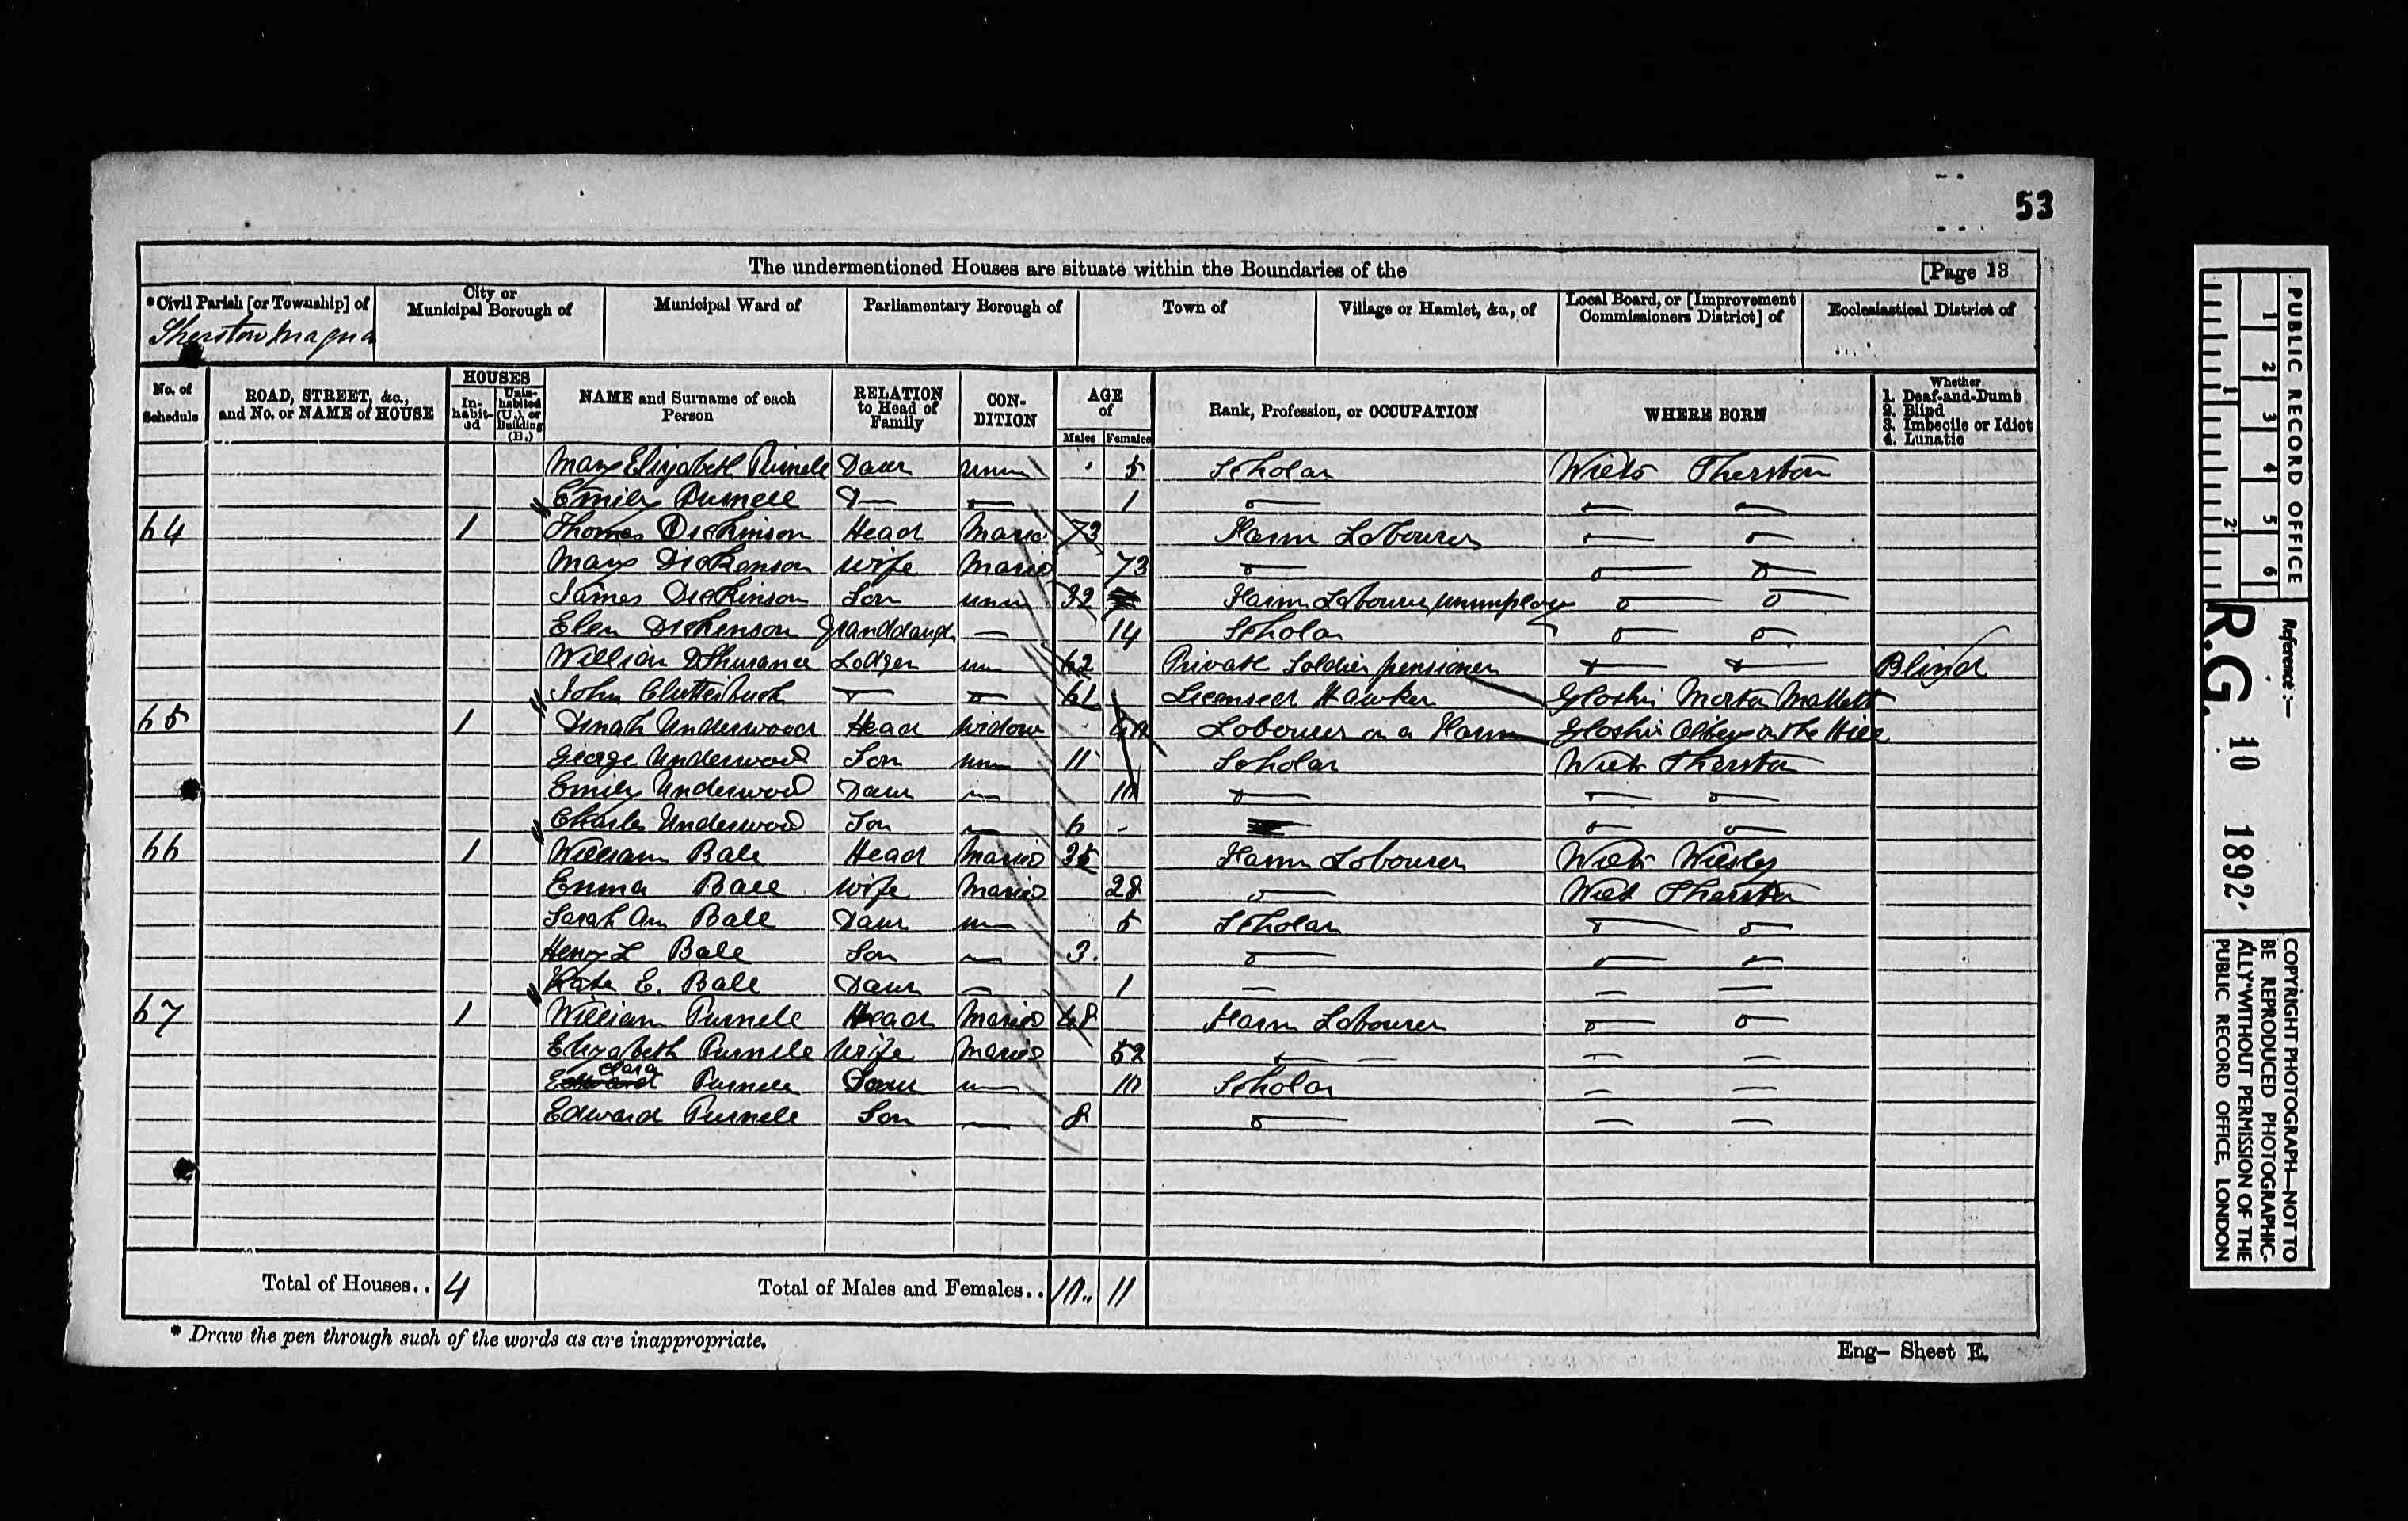 53
The undermentioned Houses are situate within the Boundaries of the [Page 13
*Civil Parish [or Township] of City or Municipal Borough of Municipal Ward of Parliamentary Borough of Town of Village or Hamlet, &c., of Local Board, or [Improvement Commissioners District] of Ecclesiastical District of
Sherston Magna
No. of Schedule ROAD, STREET, &c., and No. or NAME of HOUSE HOUSES Inhabited Uninhabited (U.), or Building (B.) NAME and Surname of each Person RELATION to Head of Family CONDITION AGE of Males Females Rank, Profession, or OCCUPATION WHERE BORN Whether 1. Deaf-and-Dumb 2. Blind 3. Imbecile or Idiot 4. Lunatic
Mary Elizabeth Purnell Daur unm 5 Scholar Wilts Sherston
Emily Purnell D— — 1 — — —
64 1 Thomas Dickinson Head Married 73 Farm Labourer — —
Mary Dickenson Wife Married 73 — — —
James Dickinson Son unm 32 Farm Labourer unemploy — —
Elen Dickenson Granddaugh — 14 Scholar — —
William Lodger unm 62 Private Soldier pensioner — — Blind
John Clutterbuck — — Licensed Hawker Gloshir
65 1 Dinah Underwood Head Widow Labourer on a Farm Gloshir on the Hill
George Underwood Son unm 11 Scholar Wilts Sherston
Emily Underwood Daur — 10 — — —
Charles Underwood Son — 6 - — —
66 1 William Ball Head Married 35 Farm Labourer Wilts
Emma Ball Wife Married 28 — Wilts Sherston
Sarah Ann Ball Daur unm 5 Scholar — —
Henry L Ball Son — 3. — — —
Kate E. Ball Daur — 1 — — —
67 1 William Purnell Head Married 48 Farm Labourer — —
Elizabeth Purnell Wife Married 52 — — —
Clara Purnell Daur unm 10 Scholar — —
Edward Purnell Son — 8 — — —
Total of Houses.. 4 Total of Males and Females.. 10 11
* Draw the pen through such of the words as are inappropriate.
Eng- Sheet E.
PUBLIC RECORD OFFICE
1 2 3 4 5 6
1 2
Reference :—
R.G. 10 1892
COPYRIGHT PHOTOGRAPH—NOT TO
BE REPRODUCED PHOTOGRAPHIC-
ALLY WITHOUT PERMISSION OF THE
PUBLIC RECORD OFFICE, LONDON